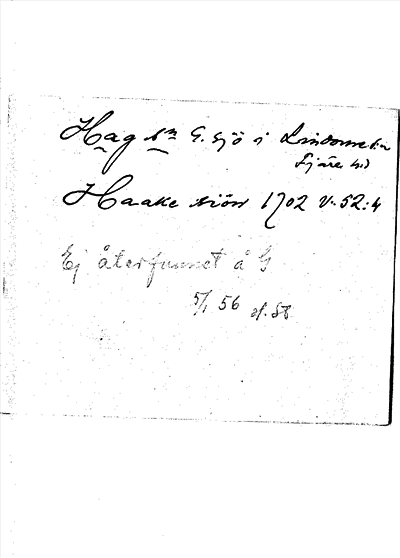 Hag sn G. sjö i Lindome sn
Fjäre hd
Haake siön 1702 V. 52:4
Ej återfunnet å G
5/1 56